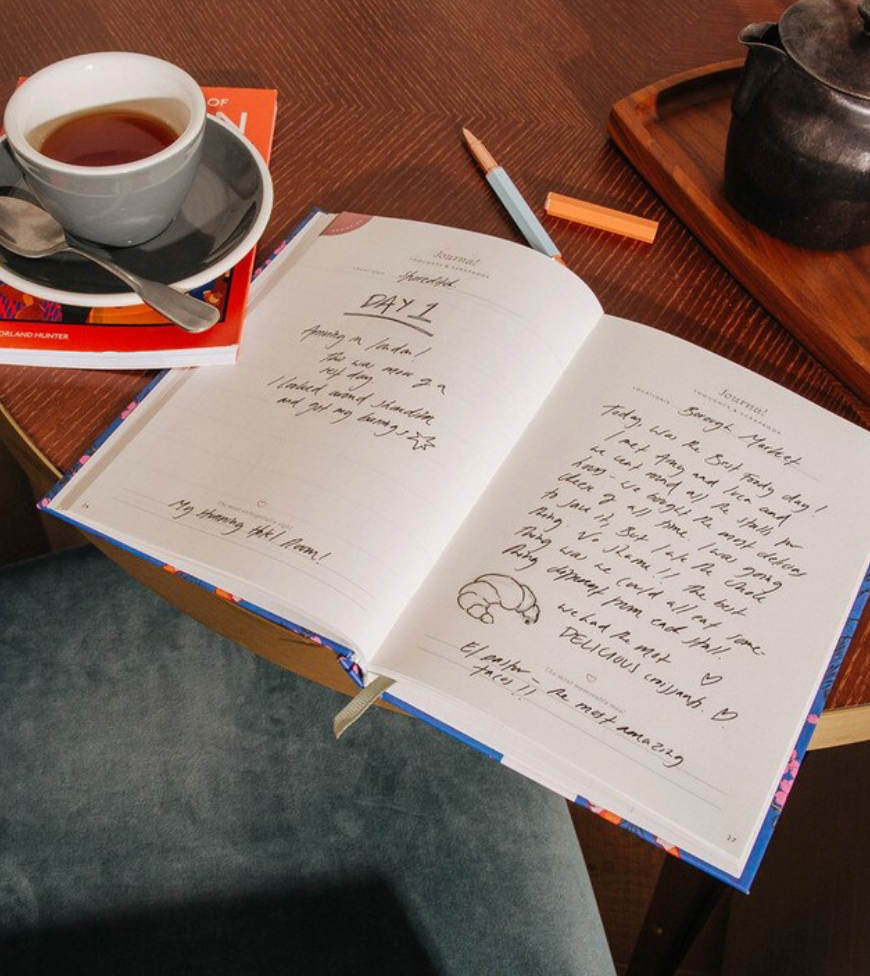 OF
ORLAND HUNTER
Journal
THOUGHTS & SCRAPBOOK
LOCATIONS Shoreditch
DAY 1
Arriving in London!
This was more of a
rest day
I looked around Shoreditch
and got my bearings
The most unforgettable sight
My Stunning Hotel Room!
26
Journal
THOUGHTS & SCRAPBOOK
LOCATIONS Borough Market
Today was the Best Foody day!
I met Amy and Luca and
we went round all the stalls for
hours - we bought the most delicious
cheese of all time. I was going
to save it, But I ate the whole
thing. No shame!! The best
thing was we could all eat some-
thing different from each stall.
we had the most
DELICIOUS croissants.
The most memorable meal
El pastor - the most amazing
tacos!!
27